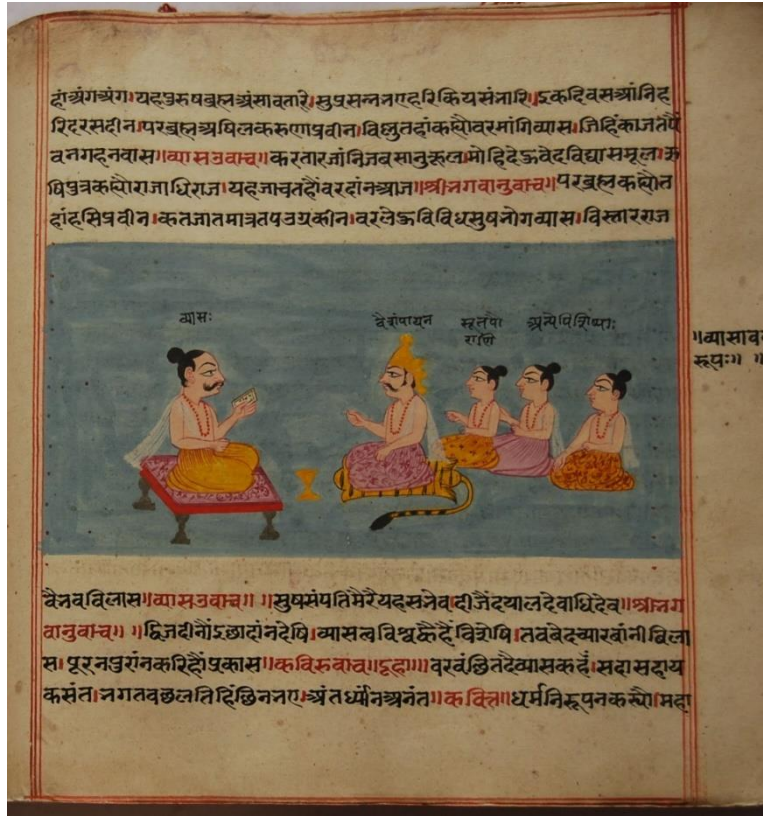 हांअंगअंग।यहपुरुषब्रह्मअंसावतारि।सुप्रसन्ननएहरिकियसंनारि।इकदिवसआंनिह
रिदरसदीन।परब्रह्मअषिलकरुणाप्रवीन।विलुतहांकह्यौवरमांगिव्यास।जिहिंकाजतपै
वनगहनवास॥व्यासउवाच॥करतारजांनिजबसानुकूल।मोहिदेऊवेदविद्यासमूल।ऋ
षिपुत्रकह्यौराजाधिराज।यहजाचतहौंवरदांनआज॥श्रीनगवानुवाच॥परब्रह्मकह्यौत
हांहसिप्रवीन।कतजातमात्रतपउग्रकीन।वरलेऊविविधसुषनोगव्यास।विस्तारराज
व्यासः
वैशंपायन
सूतपौ
राणि
अन्येपिशिष्याः
॥व्यासाव
रूपः॥ ॥
वैनवविलास॥व्यासउवाच॥ ॥सुषसंपतिमेरैयहसनेव।दीजैदयालदेवाधिदेव॥श्रीनग
वानुवाच॥ ॥द्विजदीनौंइछादांनदेषि।व्यासत्वविश्वह्वैहैंविशेषि।तवबेदच्यारबांनीविला
स।पूरनपुरांनकरिहौंप्रकास॥कविरुवाच॥दूहा॥॥वरवंछितदैव्यासकहं।सदासहाय
कसंत।नगतवछलतिहिंछिननए।अंतर्ध्यांनअनंत॥कवित्त॥धर्मनिरूपनकह्यौ।महा